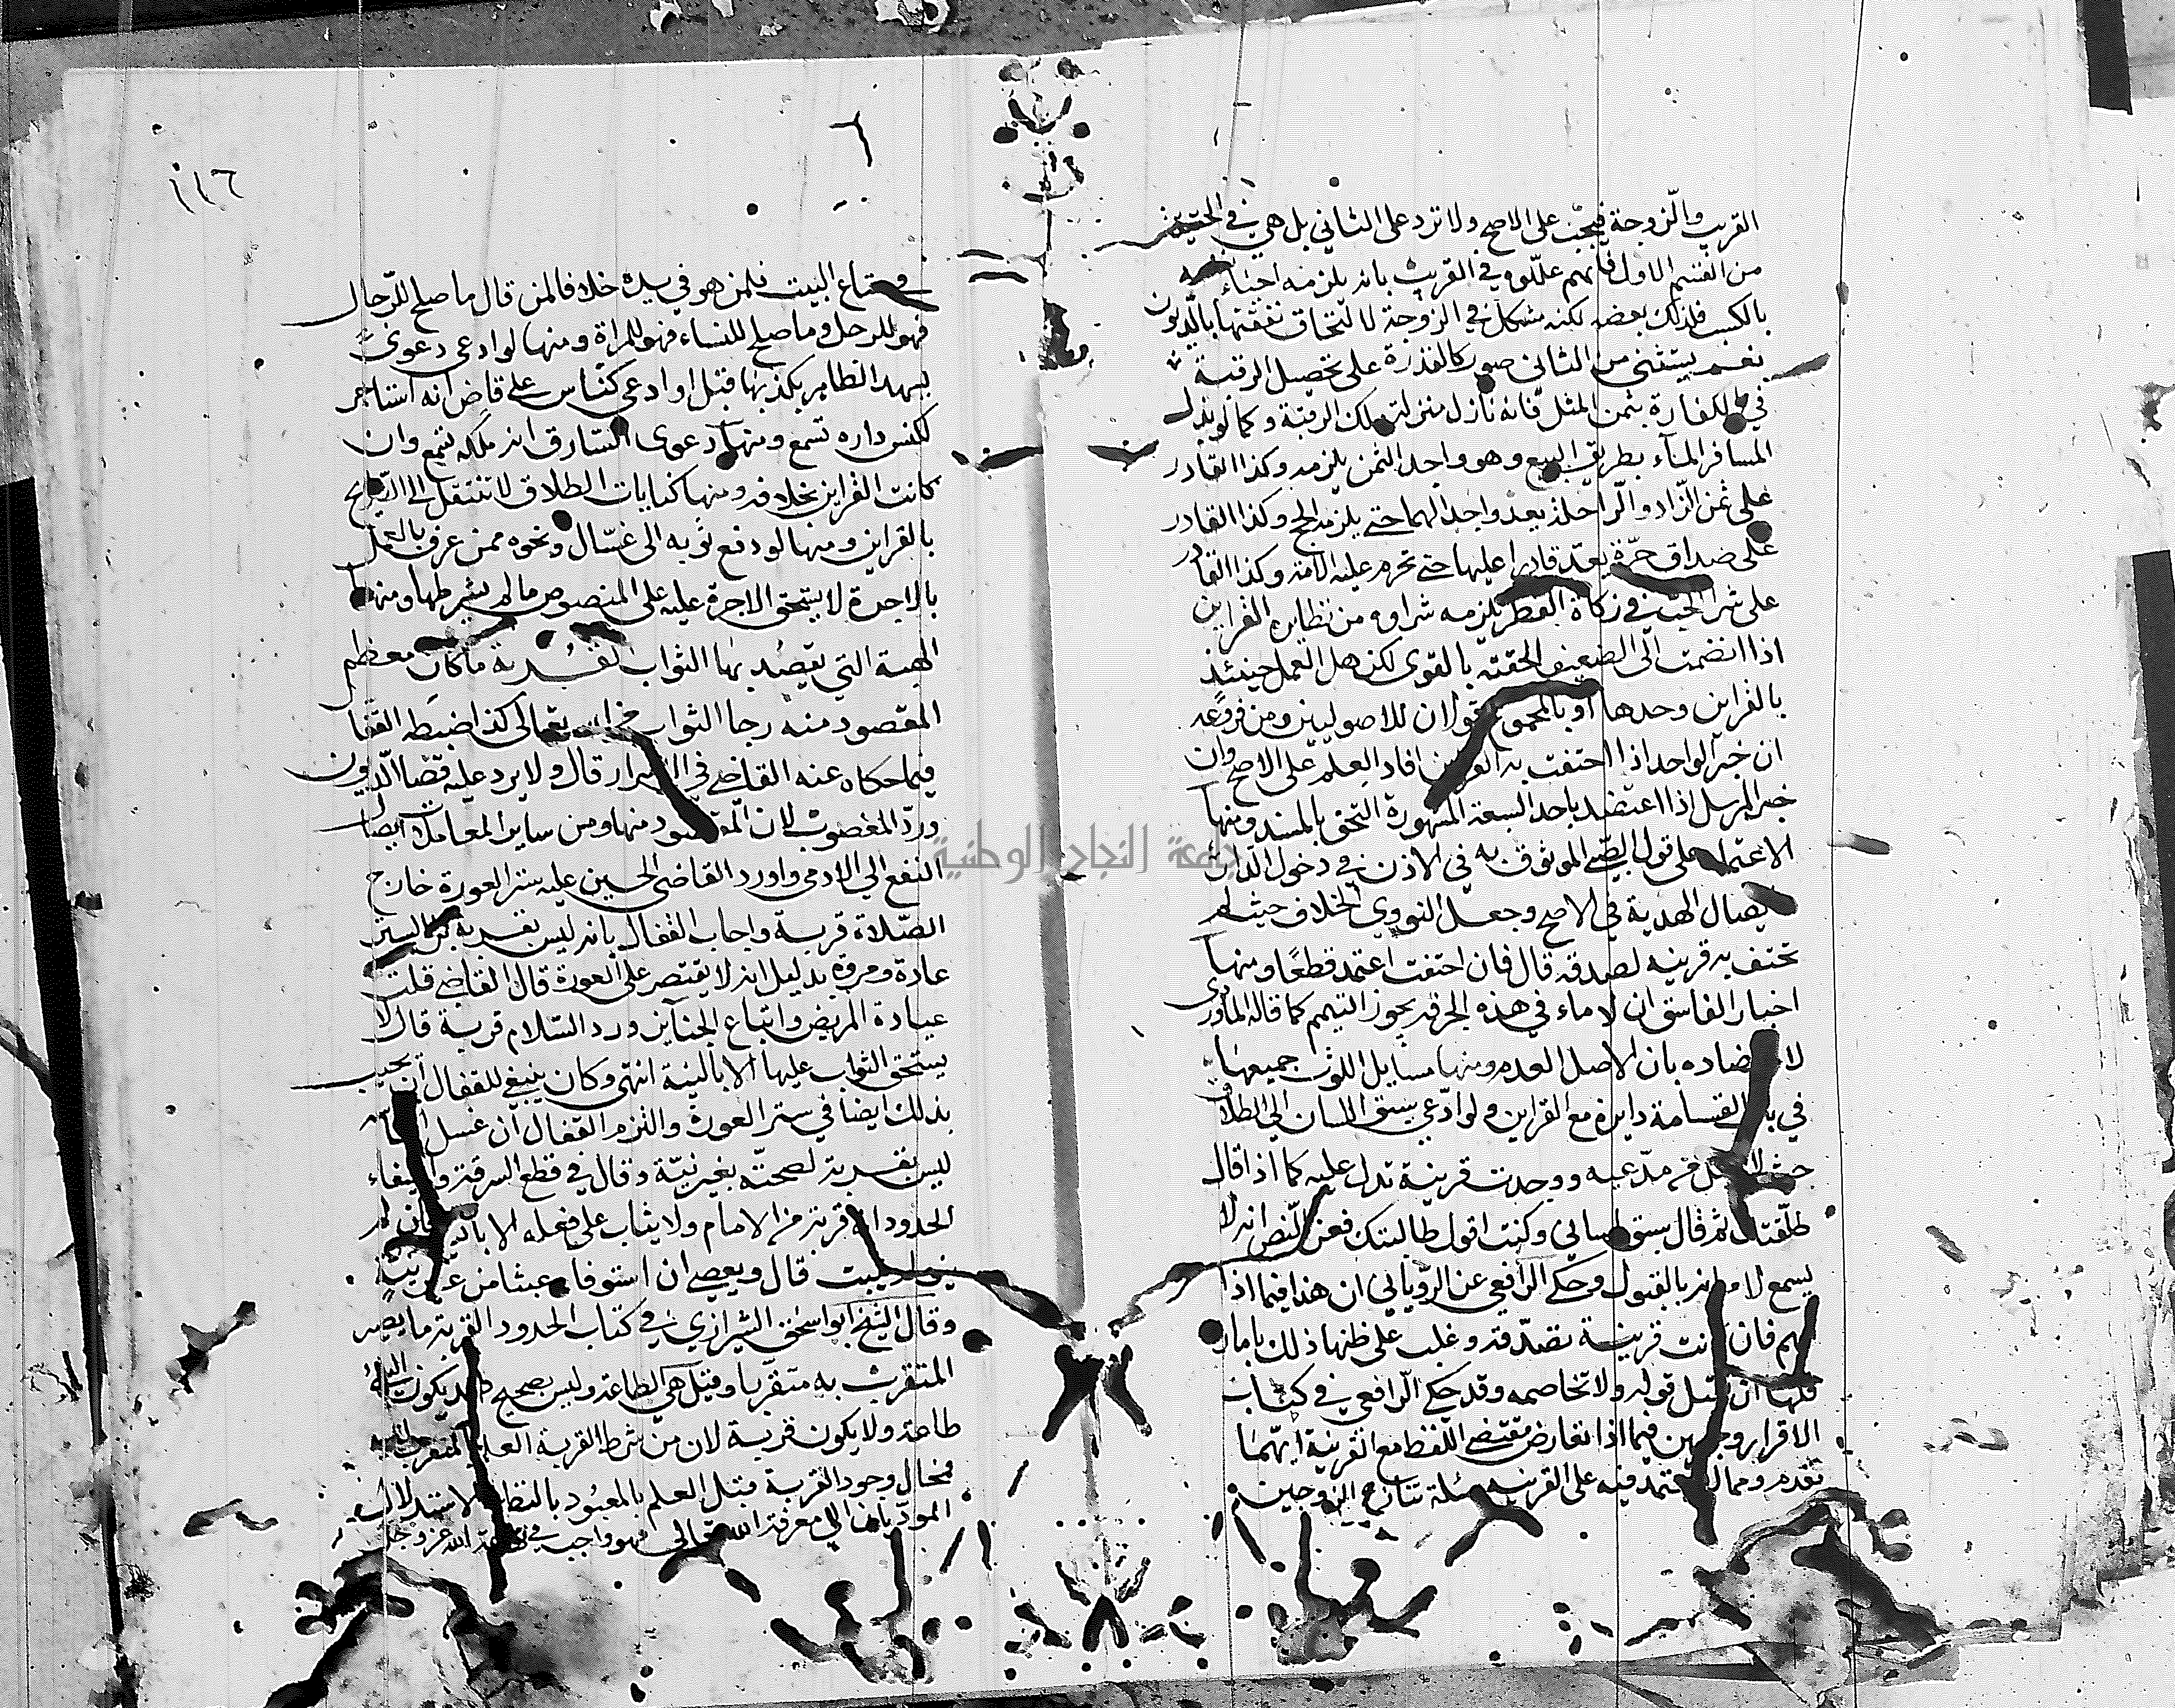 القريب والزوجة فيجب على الاصح ولا ترد على الثاني بل هي في الحقيقة
من القسم الاول فانهم علّلوه في القريب بانه يلزمه احياء
بالكسب فلذلك بعضه لكنه مشكل في الزوجة لالتحاق نفقتها بالديون
نعم يستثنى من الثاني صور كالقدرة على تحصيل الرقبة
في الكفارة بثمن المثل فانه نازل منزلة ملك الرقبة وكما لو بذل
المسافر المآء بطريق البيع وهو واجد الثمن يلزمه وكذا القادر
على ثمن الزاد والراحلة يعد واجدا لهما حتى يلزمه الحج وكذا القادر
على صداق حرّة يعدّ قادرا عليها حتى تحرم عليه الامة وكذا القادر
على شرا الحب في زكاة الفطر يلزمه شراوه من نظايره القراين
اذا انضمت الى الضعيف الحقته بالقوى لكن هل العمل حينئذ
بالقراين وحدها او بالمجموع قولان للاصوليين ومن فروعه
ان خبر الواحد اذا احتفت به القراين افاد العلم على الاصح وان
خبر المرسل اذا اعتضد باحد السبعة المشهورة التحق بالمسند ومنها
الاعتماد على قول الصبي الموثوق به في الاذن في دخول الدار
وايصال الهدية في الاصح وجعل النووي الخلاف حيث لم
تحتف به قرينه لصدقه قال فان احتفت اعتمد قطعًا ومنها
اخبار الفاسق ان لا ماء في هذه الجرة يجوز التيمم كما قاله الماوردى
لاعتضاده بان الاصل العدم ومنها مسايل اللوث جميعها
في باب القسامة دايرة مع القراين ولو ادّعي سبق اللسان الى الطلاق
حيث لا يقبل من مدّعيه ووجدت قرينة تدل عليه كما اذا قال
طلقتك ثم قال سبق لساني وكنت اقول طالبتك فعن النص انه لا
يسمع لامرانه بالقبول وحكى الرافعي عن الروياني ان هذا فيما اذا
اتهم فان كانت قرينة تصدقه وغلب على ظنها ذلك بامارة
فلها ان تقبل قوله ولا تخاصمه وقد حكى الرافعي في كتاب
الاقرار وجهين فيما اذا تعارض مقتضى اللفظ مع القرينة ايهما
تقدم ومما لا يعتمد فيه على القرينه مسئلة تنازع الزوجين
في متاع البيت فلمن هو في يده خلافا لمن قال ما صلح للرجال
فهو للرجل وما صلح للنساء فهو للمراة ومنها لو ادعى دعوىً
يشهد الظاهر بكذبها قبل او ادعى كنّاس على قاض انه استاجره
لكنس داره تسمع ومنها دعوى السارق انه ملكه تسمع وان
كانت القراين بخلافه ومنها كنايات الطلاق لا تنتقل الى الصريح
بالقراين ومنها لو دفع ثوبه الى غسّال ونحوه ممن عرف بالعمل
بالاجرة لا يستحق الاجرة عليه على المنصوص ما لم يشرطها ومنها
الهبة التي يقصد بها الثواب القُربة ما كان معظم
المقصود منه رجا الثواب من الله تعالى كذا ضبطه القفا
فيما حكاه عنه القاضي في الاسرار قال ولا يرد عليه قضا الديون
وردّ المغصوب لان المقصود منها ومن ساير المعاملات ايصال
النفع الي الادمى واورد القاضي الحسين عليه ستر العورة خارج
الصّلاة قربة واجاب القفال بانه ليس بقربة بل الستر
عادة ومروة بدليل انه لا يقتصر على العورة قال القاضي قلت
عيادة المريض واتباع الجنآيز ورد السّلام قربة قال لا
يستحق الثواب عليها الا بالنية انتهى وكان ينبغي للقفال ان يجيب
بذلك ايضا في ستر العورة والتزم القفال ان غسل النجاسه
ليس بقربة لصحته بغير نيّة وقال في قطع السرقة واستيفاء
الحدود انه قربة من الامام ولا يثاب على فعله الا بالنية فان لم
ينو لم يثبت قال ويعصي ان استوفاه عبثا من غير نيةٍ
وقال الشيخ ابو اسحق الشيرازي في كتاب الحدود القربة ما يصير
المتقرب به متقرّبا وقيل هي الطاعة وليس بصحيح قد يكون الشئ
طاعة ولا يكون قربة لان من شرط القربة العلم المتقرب اليه
فمحال وجود القربة قبل العلم بالمعبُود بالنظر والاستدلال
المؤديان الي معرفة الله تعالى فهو واجب في طاعة الله عز وجل
١١٦
جامعة النجاح الوطنية